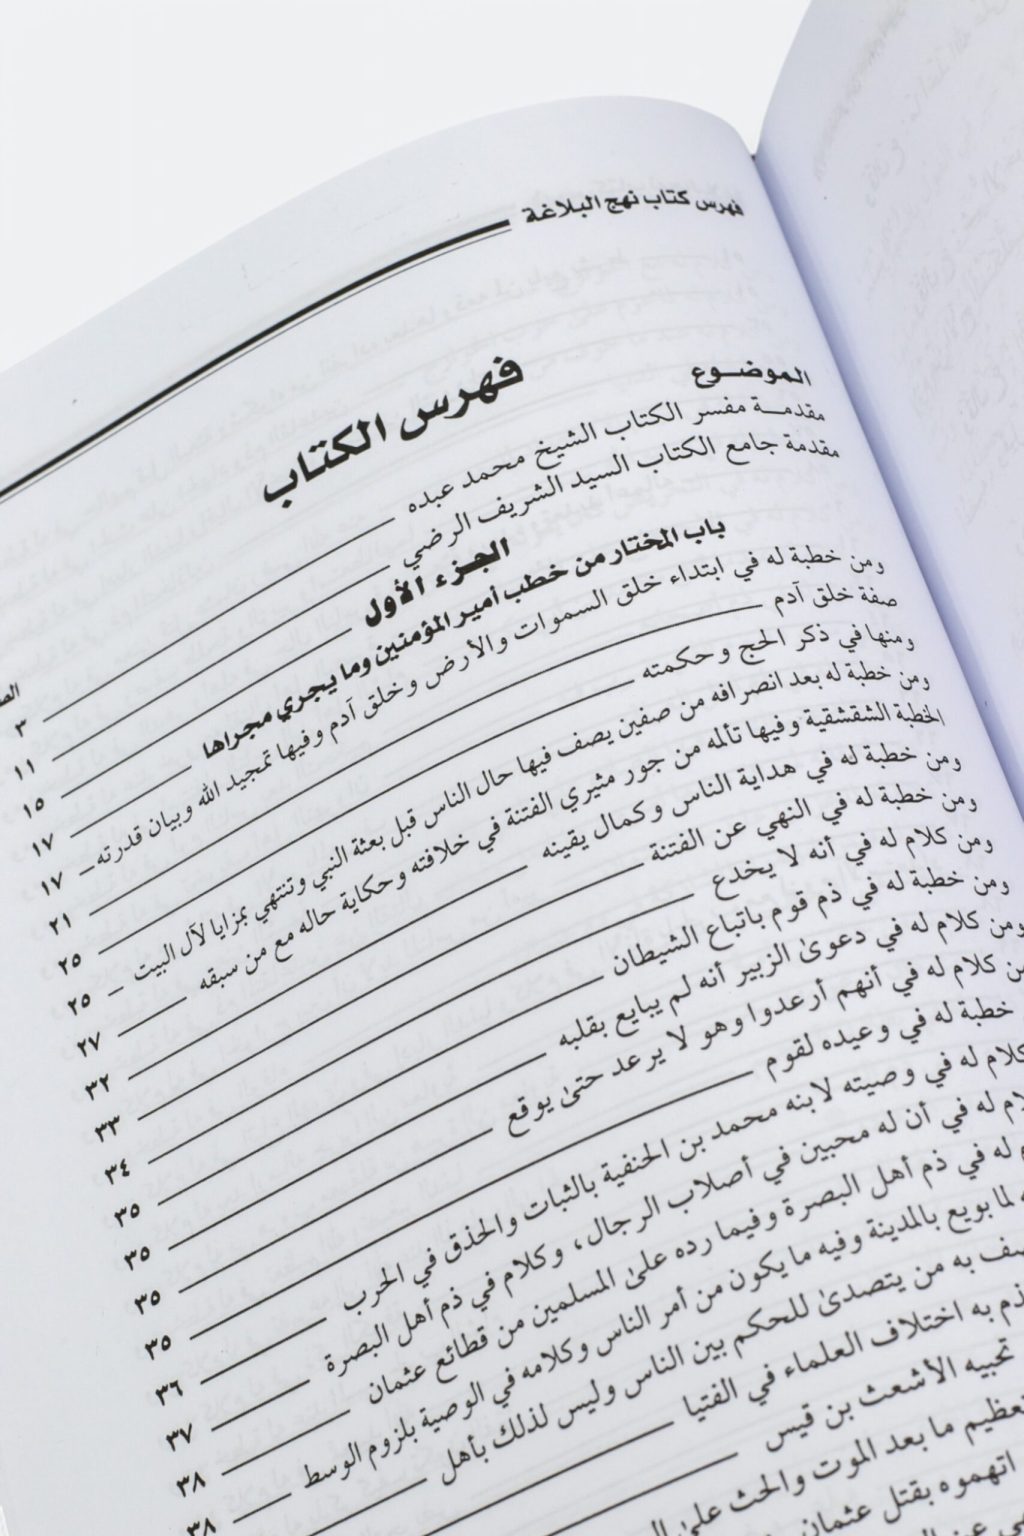 فهرس كتاب نهج البلاغة
فهرس الكتاب
الموضـوع
مقدمـة مفسر الكتاب الشيخ محمد عبده ٣
مقدمة جامع الكتاب السيد الشريف الرضي ١١
الجزء الأول ١٥
باب المختار من خطب أمير المؤمنين وما يجري مجراها ١٧
ومن خطبة له في ابتداء خلق السموات والأرض وخلق آدم وفيها تمجيد الله وبيان قدرته ١٧
صفة خلق آدم ٢١
ومنها في ذكر الحج وحكمته ٢٥
ومن خطبة له بعد انصرافه من صفين يصف فيها حال الناس قبل بعثة النبي وتنتهي بمزايا لآل البيت ٢٥
الخطبة الشقشقية وفيها تألمه من جور مثيري الفتنة في خلافته وحكاية حاله مع من سبقه ٢٧
ومن خطبة له في هداية الناس وكمال يقينه ٣٢
ومن خطبة له في النهي عن الفتنة ٣٣
ومن كلام له في أنه لا يخدع ٣٤
ومن خطبة له في ذم قوم باتباع الشيطان ٣٥
ومن كلام له في دعوىٰ الزبير أنه لم يبايع بقلبه ٣٥
كلام له في أنهم أرعدوا وهو لا يرعد حتىٰ يوقع ٣٥
خطبة له في وعيده لقوم ٣٥
كلام له في وصيته لابنه محمد بن الحنفية بالثبات والحذق في الحرب ٣٦
له في أن له محبين في أصلاب الرجال، وكلام في ذم أهل البصرة ٣٧
له في ذم أهل البصرة وفيما رده علىٰ المسلمين من قطائع عثمان ٣٨
لما بويع بالمدينة وفيه ما يكون من أمر الناس وكلامه في الوصية بلزوم الوسط ٣٨
به من يتصدىٰ للحكم بين الناس وليس لذلك بأهل
به اختلاف العلماء في الفتيا
تجبيه الأشعث بن قيس
ما بعد الموت والحث علىٰ
اتهموه بقتل عثمان